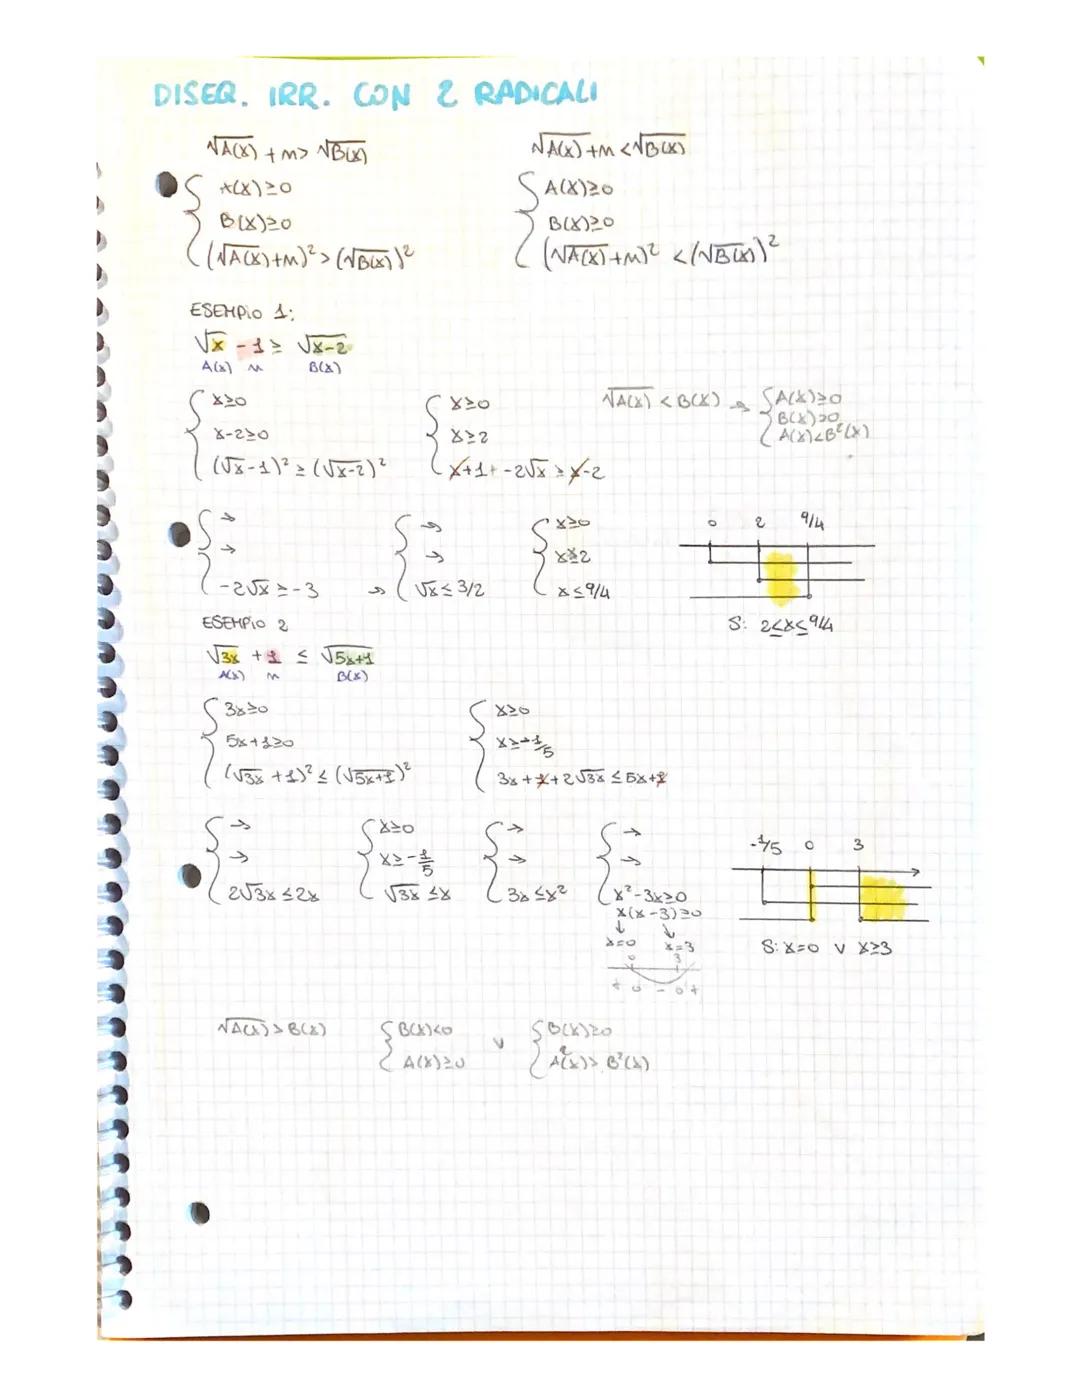 DISEQ. IRR. CON 2 RADICALI
√A(x) + m > √B(x)
{ A(x) ≥ 0
B(x) ≥ 0
(√A(x) + m)² > (√B(x))²
√A(x) + m < √B(x)
{ A(x) ≥ 0
B(x) ≥ 0
(√A(x) + m)² < (√B(x))²
ESEMPIO 1:
√x - 1 ≥ √x-2
A(x) m B(x)
{ x ≥ 0
x-2 ≥ 0
(√x - 1)² ≥ (√x-2)²
{ x ≥ 0
x ≥ 2
x + 1 + -2√x ≥ x - 2
√A(x) < B(x) → { A(x) ≥ 0
B(x) > 0
A(x) < B²(x)
{ →
→
-2√x ≥ -3
→ { →
→
√x ≤ 3/2
{ x ≥ 0
x ≥ 2
x ≤ 9/4
0 2 9/4
S: 2 ≤ x ≤ 9/4
ESEMPIO 2
√3x + 1 ≤ √5x+1
A(x) m B(x)
{ 3x ≥ 0
5x + 1 ≥ 0
(√3x + 1)² ≤ (√5x+1)²
{ x ≥ 0
x ≥ -1/5
3x + 1 + 2√3x ≤ 5x + 1
{ →
→
2√3x ≤ 2x
{ x ≥ 0
x ≥ -1/5
√3x ≤ x
{ →
→
3x ≤ x²
{ →
→
x² - 3x ≥ 0
x(x - 3) ≥ 0
↓ ↓
x=0 x=3
0 3
+ 0 - 0 +
-1/5 0 3
S: x=0 ∨ x≥3
√A(x) > B(x)
{ B(x) < 0
A(x) ≥ 0
∨
{ B(x) ≥ 0
A²(x) > B²(x)